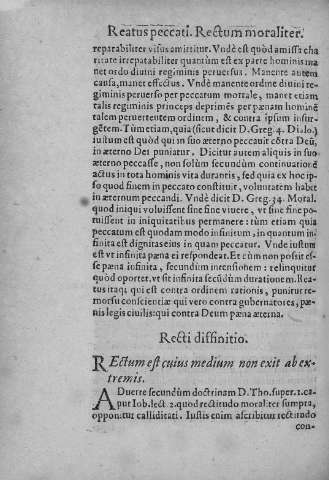 Reatus peccati. Rectum moraliter.
reparabiliter visus amittitur. Vndè est quòd amissa cha
ritate irreparabiliter quantum est ex parte hominis ma
net ordo diuini regiminis peruersus. Manente autem
causa, manet effectus. Vndè manente ordine diuini re-
giminis peruerso per peccatum mortale, manet etiam
talis regiminis princeps deprimẽs per pænam hominẽ
talem peruertentem ordinem, & contra ipsum insur-
gẽtem. Tùm etiam, quia (sicut dicit D. Greg. 4. Dialo.)
iustum est quòd qui in suo æterno peccauit cõtra Deũ,
in æterno Dei puniatur. Dicitur autem aliquis in suo
æterno peccasse, non solùm secundùm continuationẽ
actus in tota hominis vita durantis, sed quia ex hoc ip-
so quòd finem in peccato constituit, voluntatem habet
in æternum peccandi. Vndè dicit D. Greg. 34. Moral.
quod iniqui voluissent sine fine viuere, vt sine fine po-
tuissent in iniquitatibus permanere: tùm etiam quia
peccatum est quodam modo infinitum, in quantum in-
finita est dignitas eius in quam peccatur. Vnde iustum
est vt infinita pæna ei respondeat. Et cùm non possit es-
se pæna infinita, secundùm intensionem: relinquitur
quòd oportet, vt sit infinita secũdùm durationem. Rea-
tus itaq; qui est contra ordinem rationis, punitur re-
morsu conscientiæ qui vero contra gubernatores, pæ-
nis legis ciuilis: qui contra Deum pæna æterna.
Recti diffinitio.
REctum est cuius medium non exit ab ex-
tremis.
ADuerte secundùm doctrinam D. Tho. super. 1. ca-
put Iob. lect 2. quod rectitudo moraliter sumpta,
opponitur calliditati. Iustis enim ascribitur rectitudo
con-